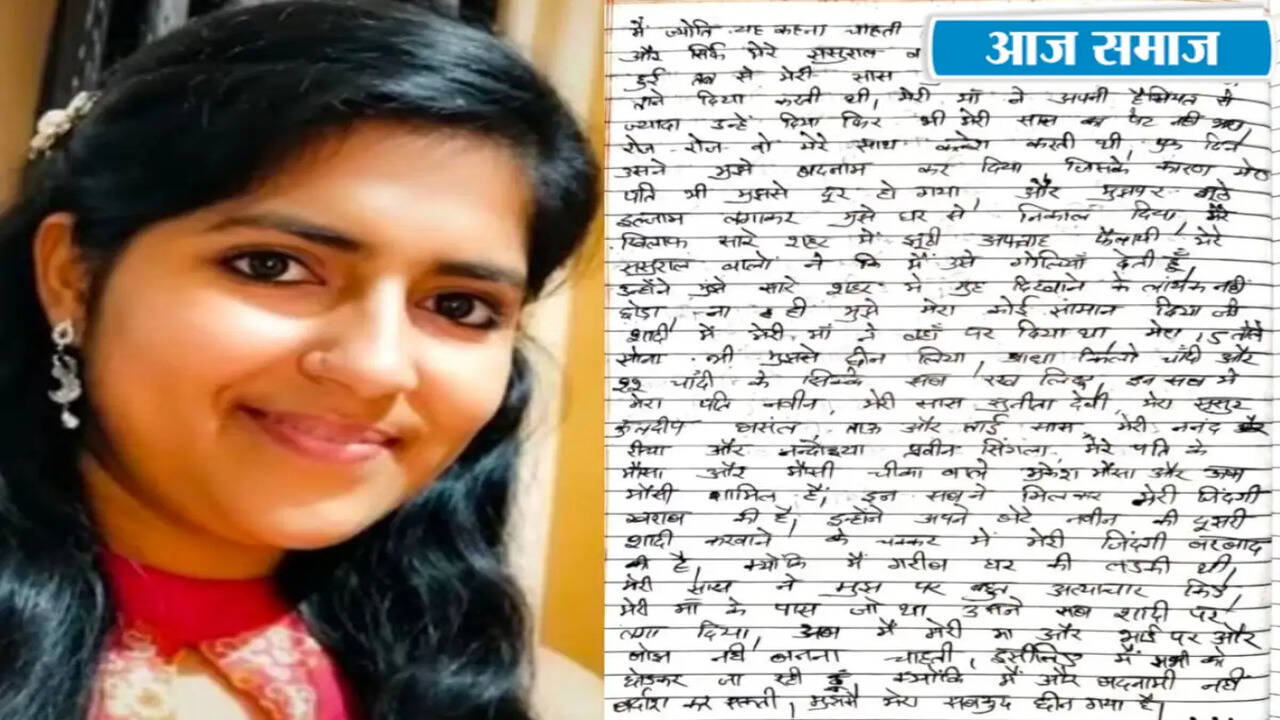 आज समाज
मैं ज्योति यह कहना चाहती
और सिर्फ मेरे ससुराल व
हुई तब से मेरी सास
ताने दिया करती थी, मेरी माँ ने अपनी हैसियत से
ज्यादा उन्हें दिया फिर भी मेरी सास का पेट नहीं भरा,
रोज-रोज वो मेरे साथ क्लेश करती थी, एक दिन
उसने मुझे बदनाम कर दिया जिसके कारण मेरा
पति भी मुझसे दूर हो गया और मुझपर झूठे
इल्जाम लगाकर मुझे घर से निकाल दिया, मेरे
खिलाफ सारे शहर में झूठी अफवाह फैलायी मेरे
ससुराल वालो ने कि मैं उसे गोलियाँ देती हूँ
उन्होंने मुझे सारे शहर मे मुह दिखाने के लायक नहीं
छोडा ना ही मुझे मेरा कोई सामान दिया जो
शादी में मेरी माँ ने वहाँ पर दिया था मेरा 15 तोले
सोना भी मुझसे छीन लिया, आधा किलो चाँदी और
22 चाँदी के सिक्के सब रख लिए, इन सब मे
मेरा पति नवीन, मेरी सास सुनीता देवी, मेरा ससुर
कुलदीप बासंल ताऊ और ताई सास मेरी ननंद और
रीया और नन्दोइया प्रवीन सिंगला, मेरे पति के
मौसा और मौसी चीका वाले मुकेश मौसा और
मौसी शामिल हैं, इन सबने मिलकर मेरी जिंदगी
खराब की है, इन्होंने अपने बेटे नवीन की दूसरी
शादी करवाने के चक्कर में मेरी जिंदगी बरबाद
की है, क्योकि मैं गरीब घर की लडकी थी,
मेरी सास ने मुझ पर बहुत अत्याचार किए,
मेरी माँ के पास जो था उसने सब शादी पर
लगा दिया, अब मैं मेरी मा और भाई पर और
बोझ नहीं बनना चाहती, इसीलिए मैं सभी को
छोडकर जा रही हूँ, क्योंकि मैं और बदनामी नहीं
बर्दाश कर सकती, मुझसे मेरा सबकुछ छीन गया है,